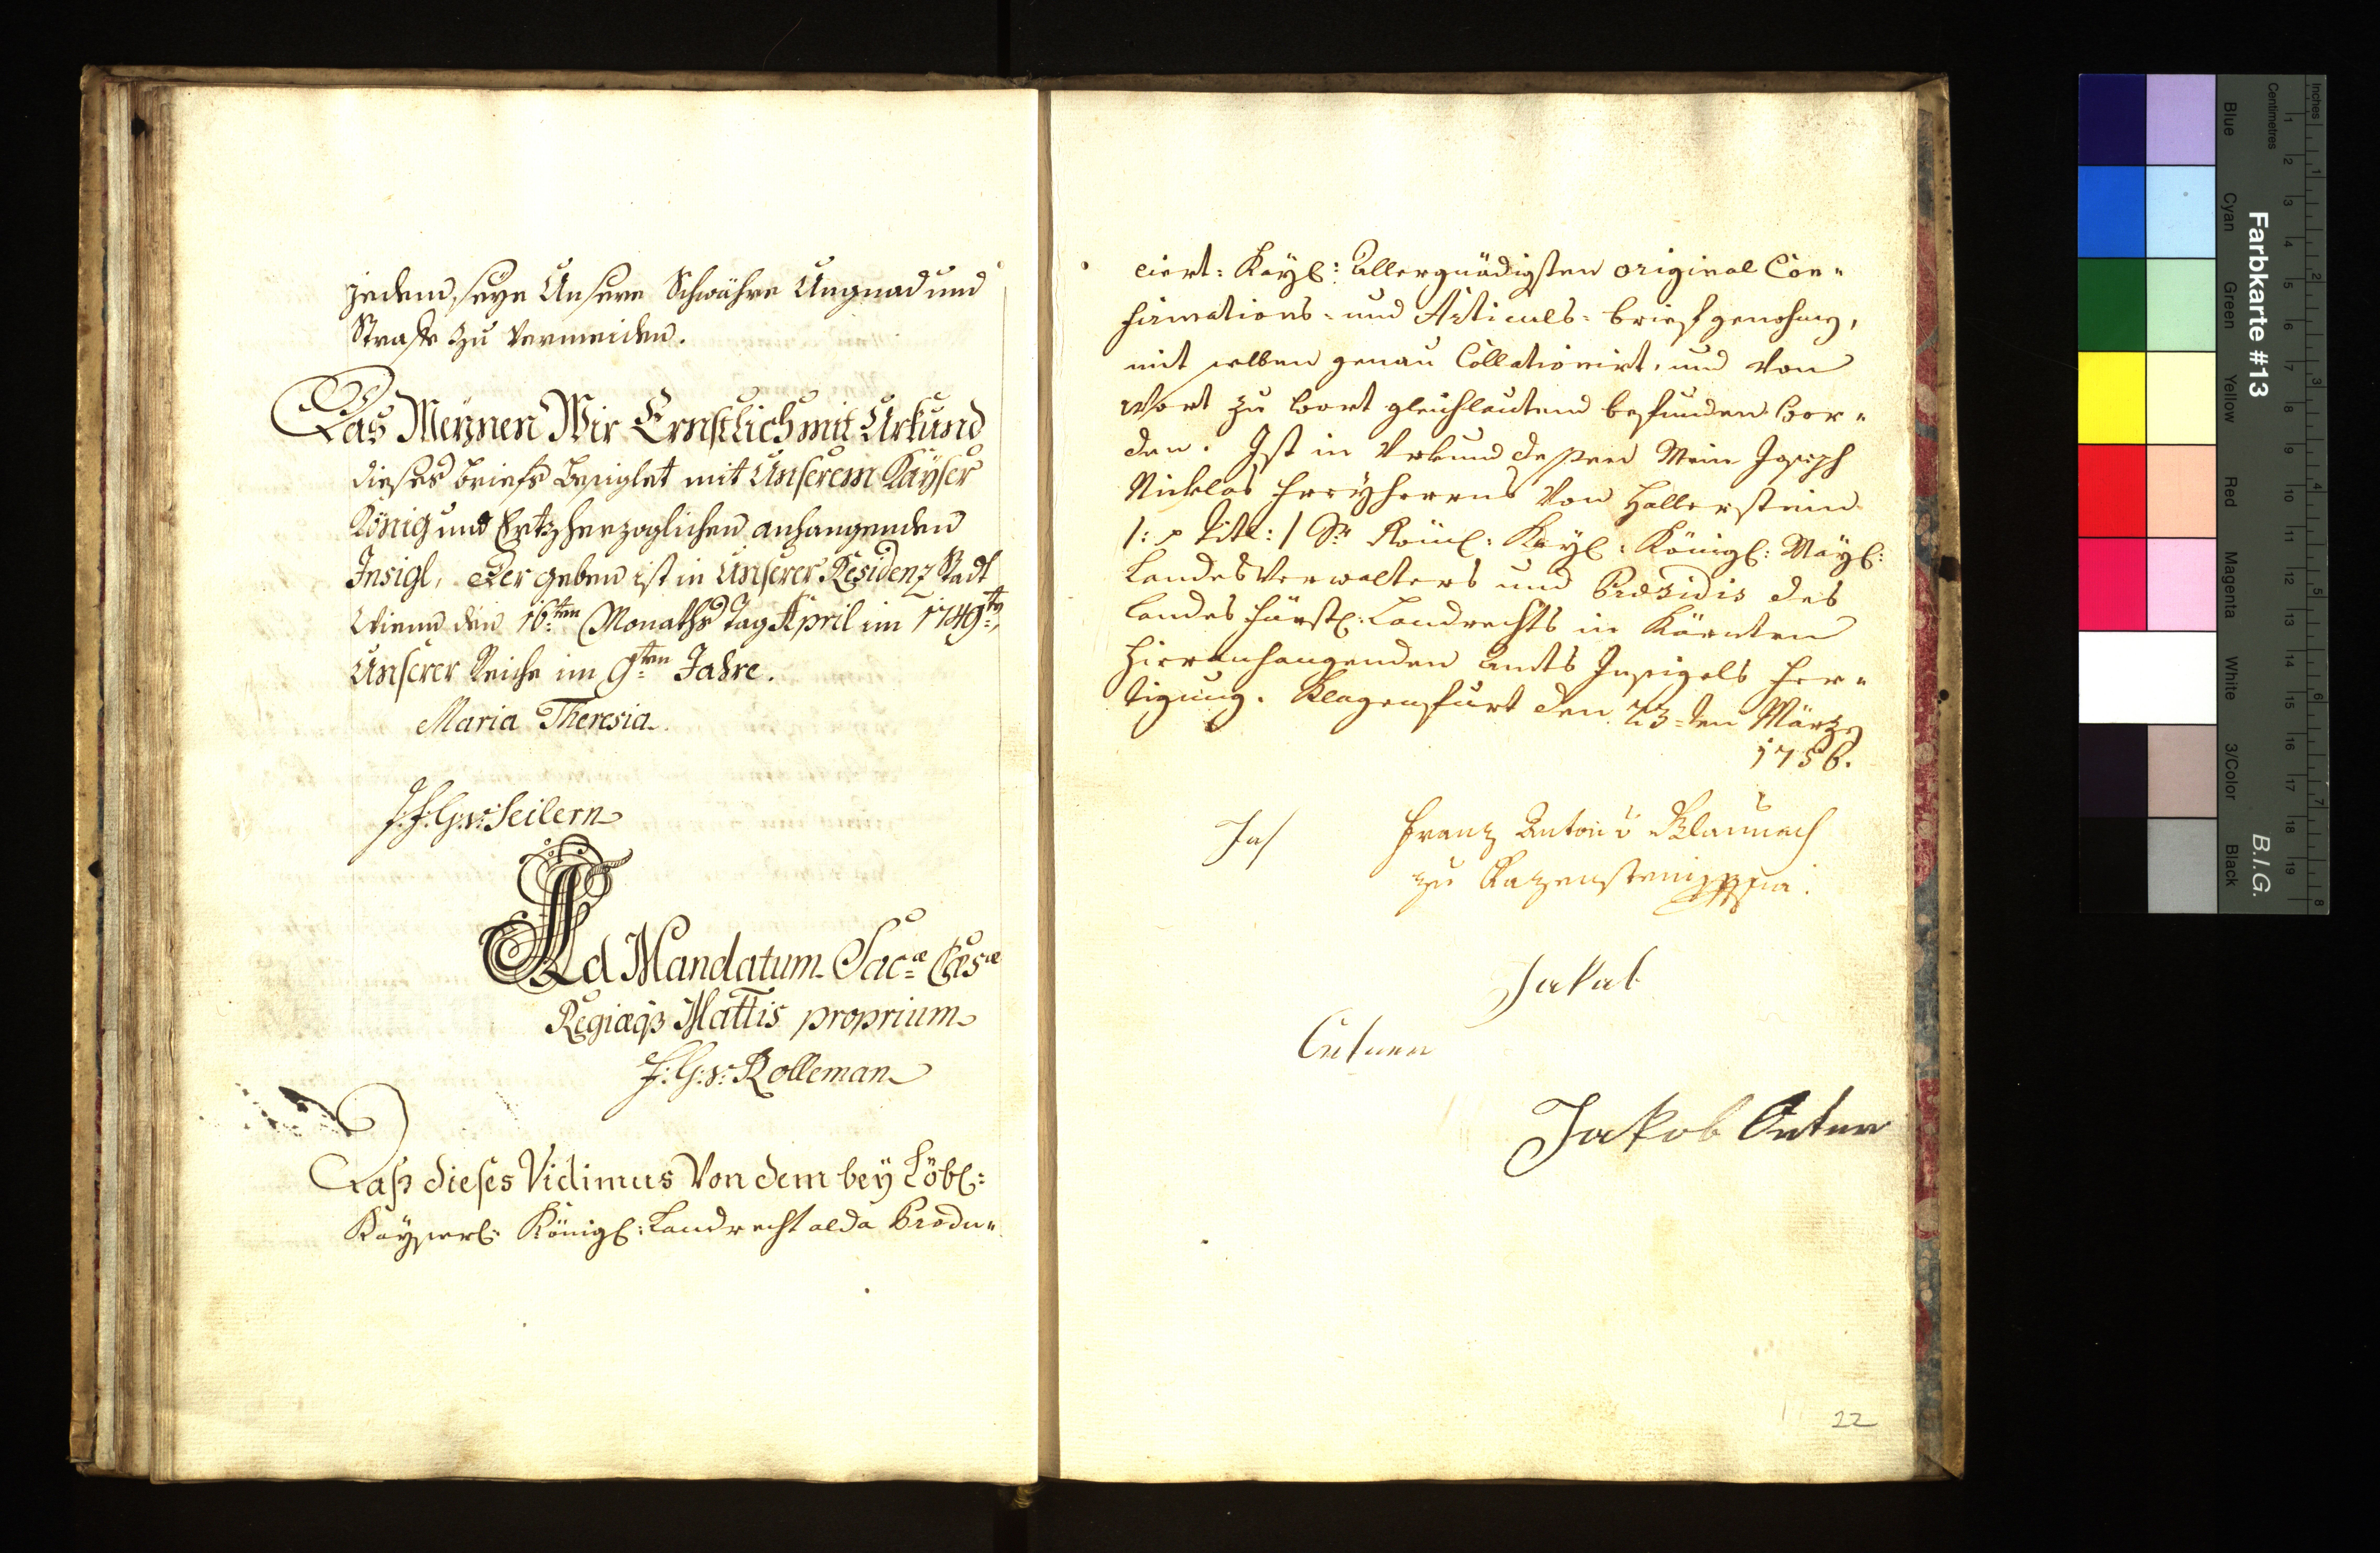 jedem, seye Unsere Schwähre Ungnad und
Straffe zu Vermeiden.
Das Meÿnen Wir Ernstlich mit Urkund
dieses briefs besiglet mit Unserem Kaÿser
König und Ertzherzoglichen anhangenden
Insigl, Der geben ist in Unserer Residenz Stadt
Wienn den 16:ten Monaths Tag April im 1749:ten
Unserer Reiche im 9:ten Jahre.
Maria Theresia.
J. F. G: v: Seilern
Ad Mandatum Sac:æ Cæs:æ
Regiæq3 Mattis proprium
F: G: v: Kolleman
Daß dieses Vidimus Von dem beÿ Löbl:
Kaÿserl: Königl: Landrecht alda Produ=
cirt: Kaÿl: Allergnädigsten original Con=
firmations- und Articuls- brief genohmen,
mit selben genau Collationirt, und Von
Wort zu Wort gleichlautend befunden Wor=
den. Ist in Urkund dessen Mein Joseph
Nicklas Freÿherrns Von Hallerstein
/: Titl: / Sr Röml: Kaÿl: Königl: Maÿl:
LandesVerwalters und Præsidis des
Landesfürstl: Landrechts in Kärnten
hieranhangenden Amts Insigels Fer=
tigung. Klagenfurt den 23-ten Märzen
1756.
Franz Antoni
zu
Jakob
22